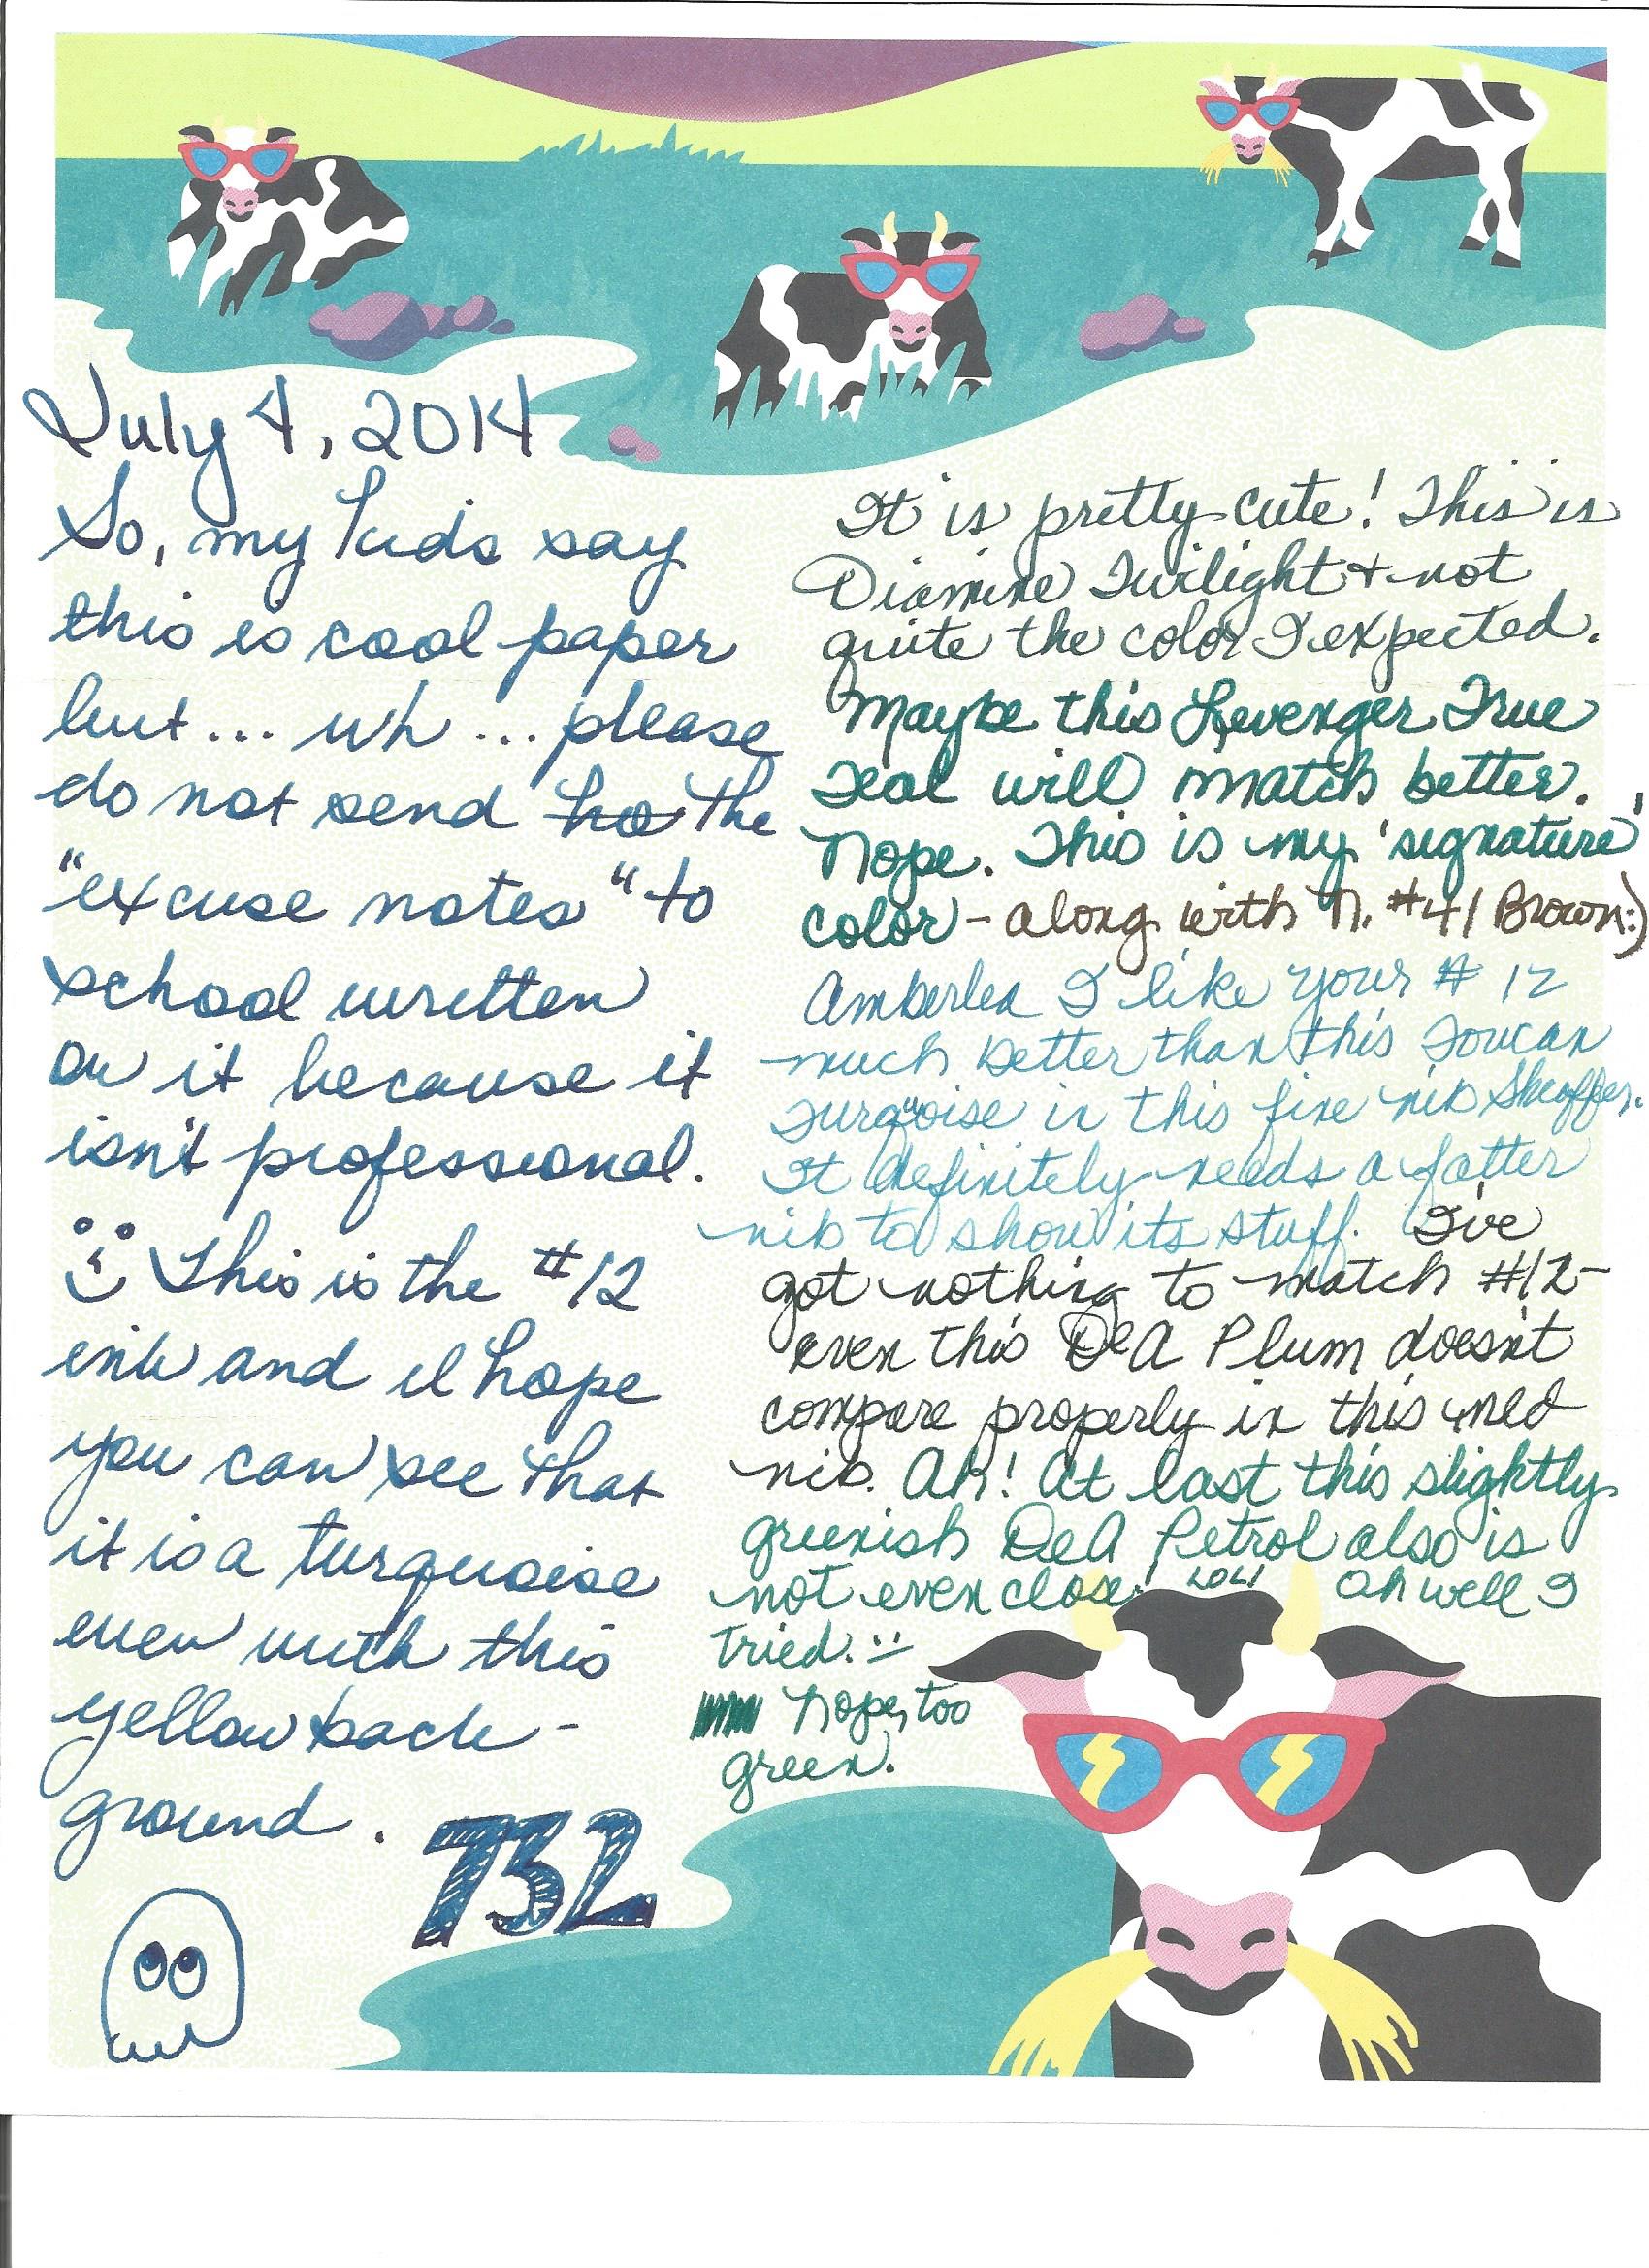 July 4, 2014
So, my kids say
this is cool paper
but... uh... please
do not send ho the
"excuse notes" to
school written
on it because it
isn't professional.
This is the #12
ink and I hope
you can see that
it is a turquoise
even with this
yellow back-
ground.
732
It is pretty cute! This is
Diamine Twilight + not
quite the color I expected.
Maybe this Levenger True
Teal will match better.
Nope. This is my 'signature'
color - along with N. #41 Brown :)
Amberlea I like your #12
much better than this Toucan
Turquoise in this fine nib Sheaffer.
It definitely needs a fatter
nib to show its stuff. I've
got nothing to match #12-
even this DeA Plum doesn't
compare properly in this med
nib. Ah! At last this slightly
greenish DeA Petrol also is
not even close! LOL! Oh well I
tried. :-
Nope, too
green.